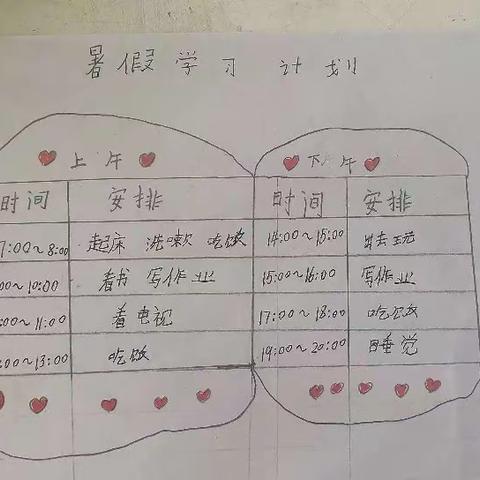 暑假学习计划
上午 下午
时间 安排 时间 安排
7:00~8:00 起床 洗嗽 吃饭 14:00~15:00 出去玩
00~10:00 看书 写作业 15:00~16:00 写作业
:00~11:00 看电视 17:00~18:00 吃饭
:00~13:00 吃饭 19:00~20:00 睡觉